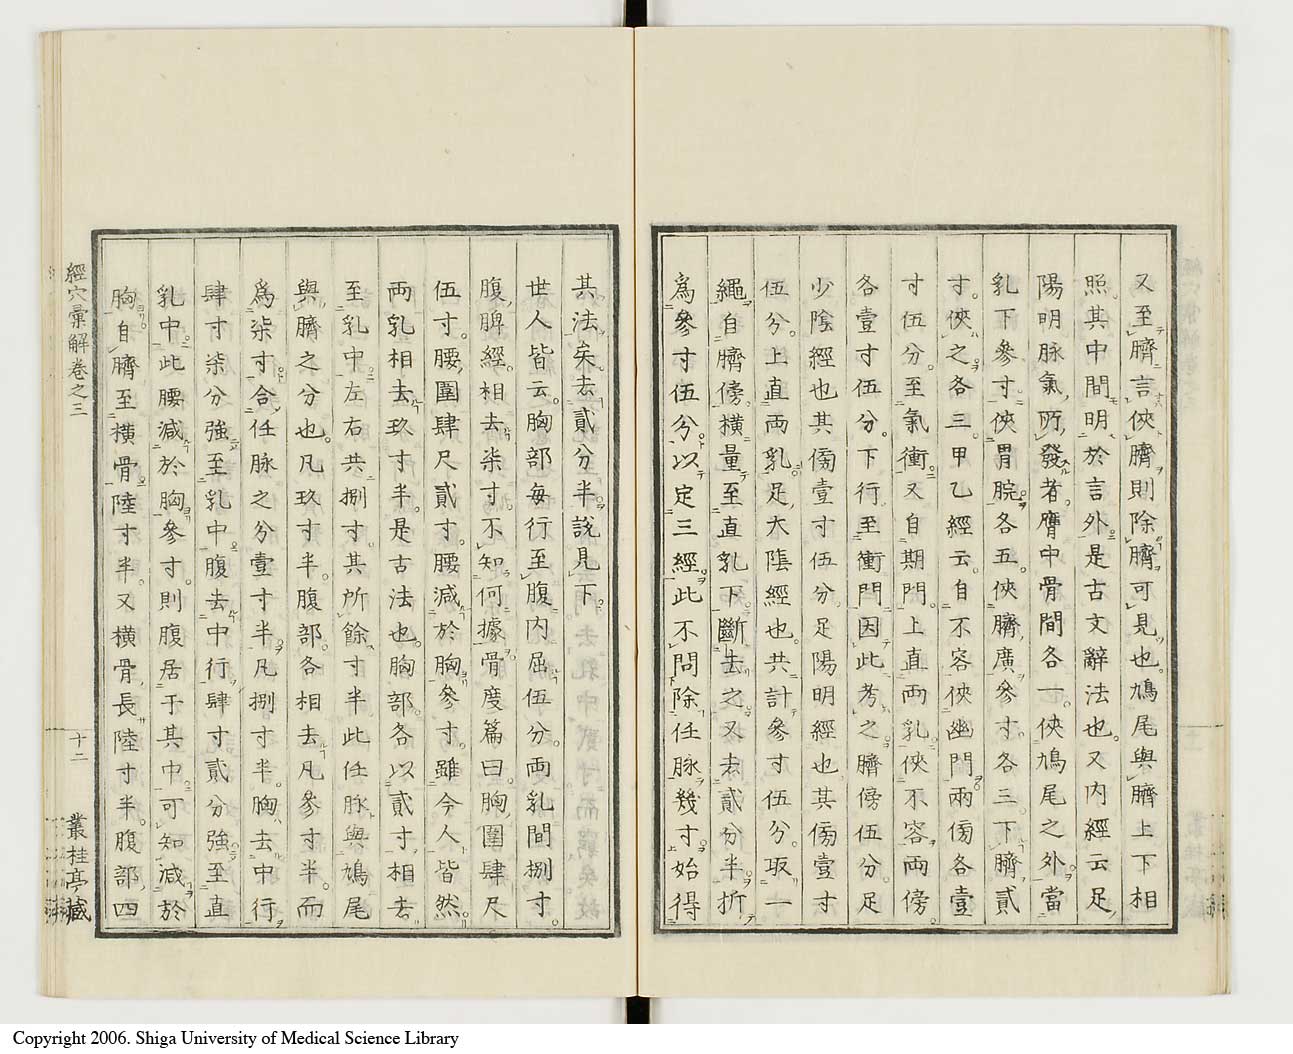 又至臍言俠臍則除臍可見也鳩尾與臍上下相
照其中間明於言外是古文辭法也又内經云足
陽明脉氣所發者膺中骨間各一俠鳩尾之外當
乳下參寸俠胃脘各五俠臍廣參寸各三下臍貳
寸俠之各三甲乙經云自不容俠幽門兩傍各壹
寸伍分至氣衝又自期門上直兩乳俠不容兩傍
各壹寸伍分下行至衝門因此考之臍傍伍分足
少陰經也其傍壹寸伍分足陽明經也其傍壹寸
伍分上直兩乳足太陰經也共計參寸伍分取一
繩自臍傍橫量至直乳下斷去之又去貳分半折
為參寸伍分以定三經此不問除任脉幾寸始得
其法矣去貳分半說見下
世人皆云胸部每行至腹内屈伍分兩乳間捌寸
腹脾經相去柒寸不知何據骨度篇曰胸圍肆尺
伍寸腰圍肆尺貳寸腰減於胸參寸雖今人皆然
兩乳相去玖寸半是古法也胸部各以貳寸相去
至乳中左右共捌寸其所餘寸半此任脉與鳩尾
與臍之分也凡玖寸半腹部各相去凡參寸半而
為柒寸合任脉之分壹寸半凡捌寸半胸去中行
肆寸柒分強至乳中腹去中行肆寸貳分強至直
乳中此腰減於胸參寸則腹居于其中可知減於
胸自臍至橫骨陸寸半又橫骨長陸寸半腹部四
經穴彙解卷之三
十二
叢桂亭藏
Copyright 2006. Shiga University of Medical Science Library